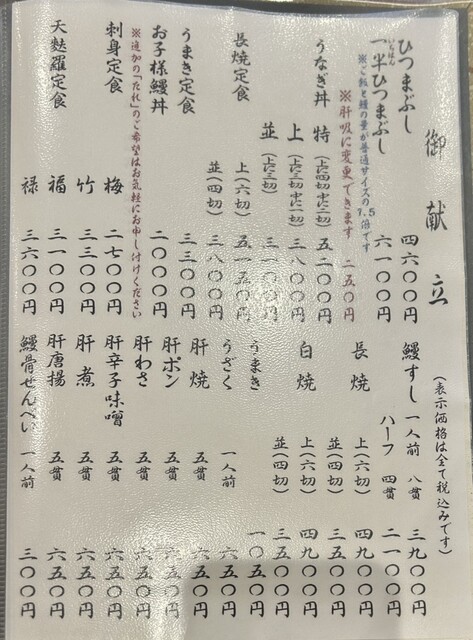 御献立
(表示価格は全て税込みです)
ひつまぶし 四六〇〇円
いちはん
一半ひつまぶし 六一〇〇円
※ご飯と鰻の量が普通サイズの1.5倍です
※肝吸に変更できます 二五〇円
うなぎ丼 特(上に四切中に二切) 五二〇〇円
上(上に三切中に一切) 三八〇〇円
並(上に三切) 三一〇〇円
長焼定食 上(六切) 五一五〇円
並(四切) 三八〇〇円
うまき定食 三三〇〇円
お子様鰻丼 二〇〇〇円
※追加の「たれ」のご希望はお気軽にお申し付けください
刺身定食 梅 二七〇〇円
竹 三三〇〇円
天麩羅定食 福 三一〇〇円
禄 三六〇〇円
鰻すし 一人前 八貫 三九〇〇円
ハーフ 四貫 二一〇〇円
長焼 上(六切) 四九〇〇円
並(四切) 三五〇〇円
白焼 上(六切) 四九〇〇円
並(四切) 三五〇〇円
うまき 一〇五〇円
うざく 一人前 六五〇円
肝焼 五貫 六五〇円
肝ポン 五貫 六五〇円
肝わさ 五貫 六五〇円
肝辛子味噌 五貫 六五〇円
肝煮 五貫 六五〇円
肝唐揚 五貫 六五〇円
鰻骨せんべい 一人前 三〇〇円